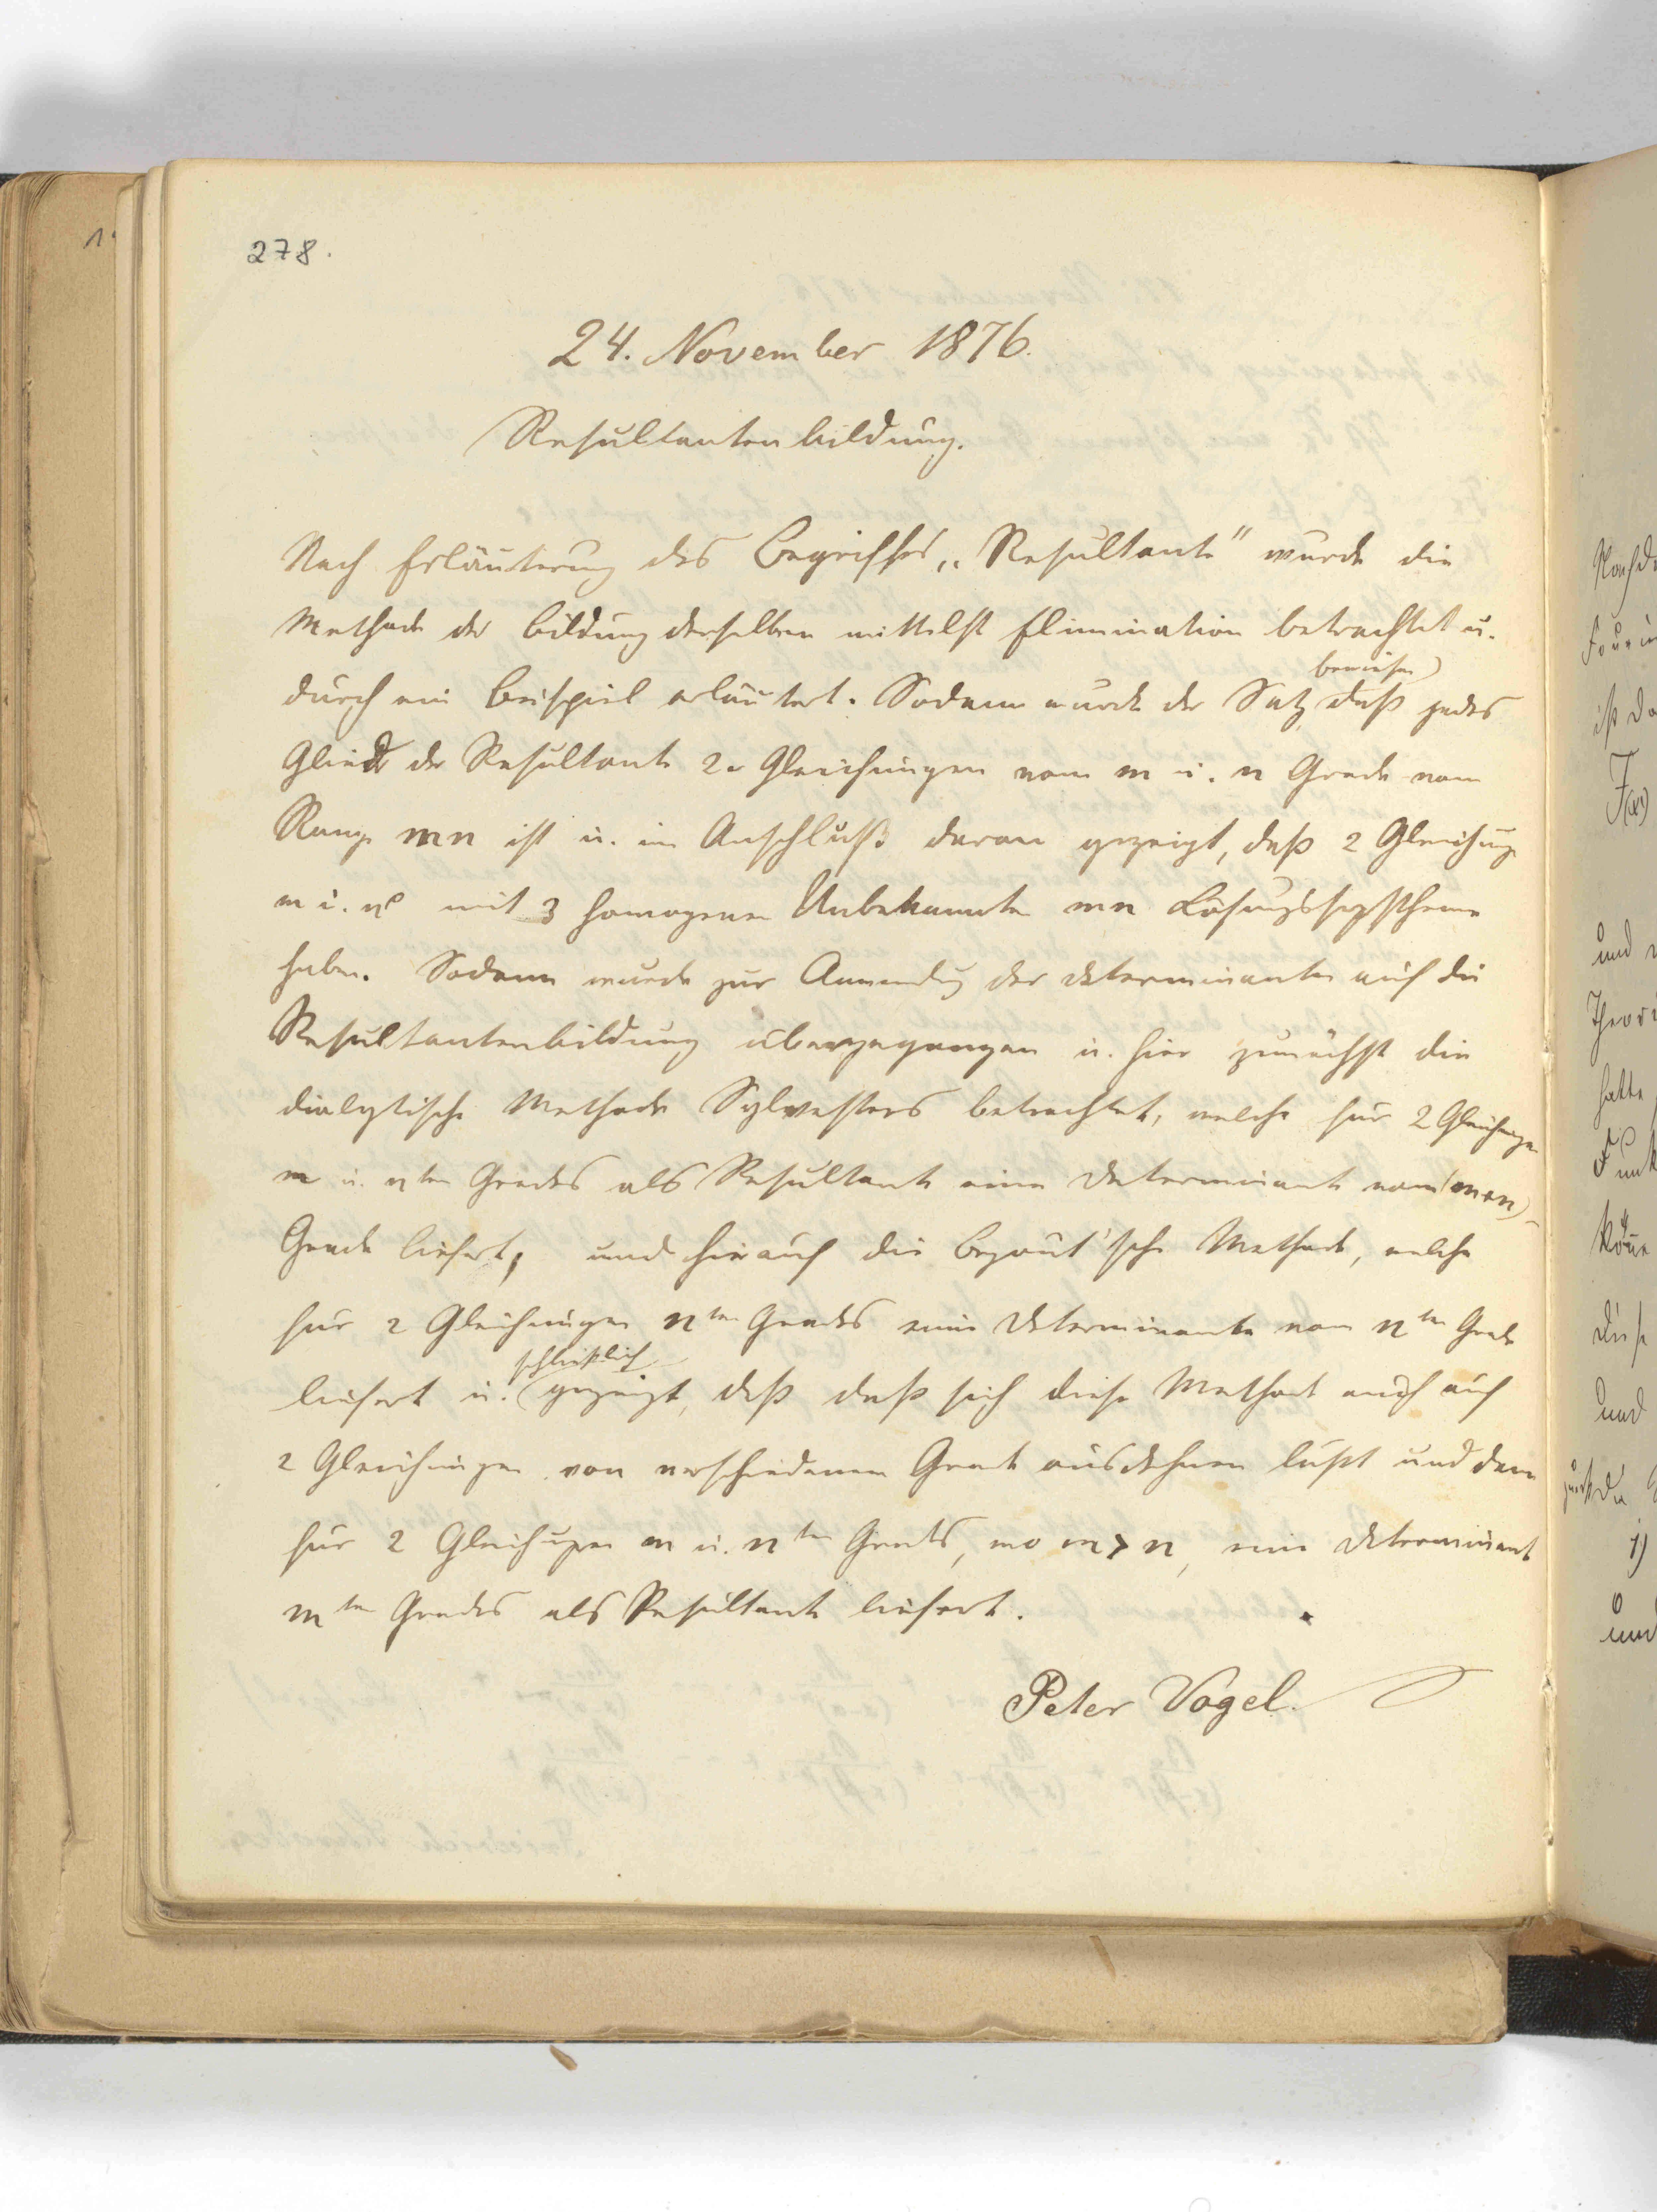 278.
24. November 1876.
Resultantenbildung.
Nach Erläuterung des Begriffes „Resultante" wurde die
Methode der Bildung derselben mittelst Elimination betrachtet u.
bewiesen
durch ein Beispiel erläutert. Sodann wurde der Satz, daß jedes
Glied der Resultante 2er Gleichungen vom m u. n Grade vom
Range mn ist u. im Anschluß daran gezeigt, daß 2 Gleichunge
m u. n mit 3 homogenen Unbekannten mn Lösungssystheme
haben. Sodann wurde zur Anwendug der Determinanten auf die
Resultantenbildung übergegangen u. hier zunächst die
dialytische Methode Sylvesters betrachtet, welche für 2 Gleichungen
m u. nten Grades als Resultante eine Determinante vom (m+n)-
Grade liefert, und hierauf die Bezout'sche Methode, welche
für 2 Gleichungen nten Grades eine Determinante vom nten Grade
schließlich
liefert u. gezeigt, daß daß sich diese Methode auch auf
2 Gleichungen von verschiedenem Grade ausdehnen läßt und dann
für 2 Gleichungen m u. nten Grades, wo m > n, eine Determinante
mten Grades als Resultante liefert.
Peter Vogel.